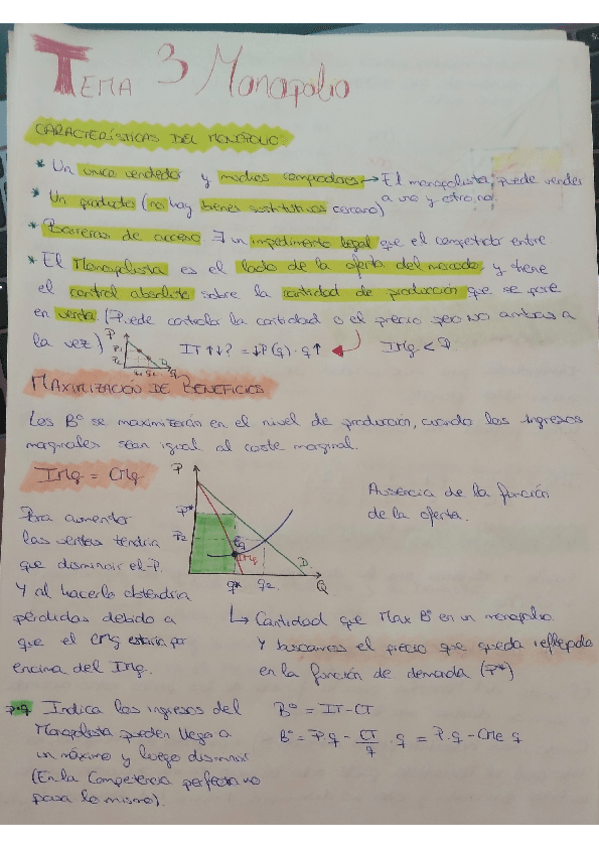 TEMA 3 Monopolio
CARACTERÍSTICAS DEL MONOPOLIO:
* Un único vendedor y muchos compradores → El monopolista, puede vender
a uno y otro no.
* Un producto (no hay bienes sustitutivos cercano)
* Barreras de acceso ∃ un impedimento legal que el competidor entre
* El Monopolista es el lado de la oferta del mercado, y tiene
el control absoluto sobre la cantidad de producción que se pone
en venta. (Puede controlar la cantidad o el precio pero NO ambas a
la vez)
P
P1
P2
q1 q2 D
Q
IT↑↓? = ↓P(q)·q↑
IMg < P
MAXIMIZACIÓN DE BENEFICIOS
Los Bº se maximizarán en el nivel de producción, cuando los ingresos
marginales sean igual al coste marginal.
IMg = CMg
P
P*
P2
Eq
IMg
D
q* q2 Q
Ausencia de la función
de la oferta.
Para aumentar
las ventas tendría
que disminuir el P.
Y al hacerlo obtendría
pérdidas debido a
que el CMg estaría por
encima del IMg.
↳ Cantidad que Max Bº en un monopolio
Y buscamos el precio que queda reflejado
en la función de demanda (P*)
P·q Indica los ingresos del
Monopolista pueden llegar a
un máximo y luego disminuir
(En la Competencia perfecta no
pasa lo mismo).
Bº = IT - CT
Bº = P·q - CT/q · q = P·q - CMe q